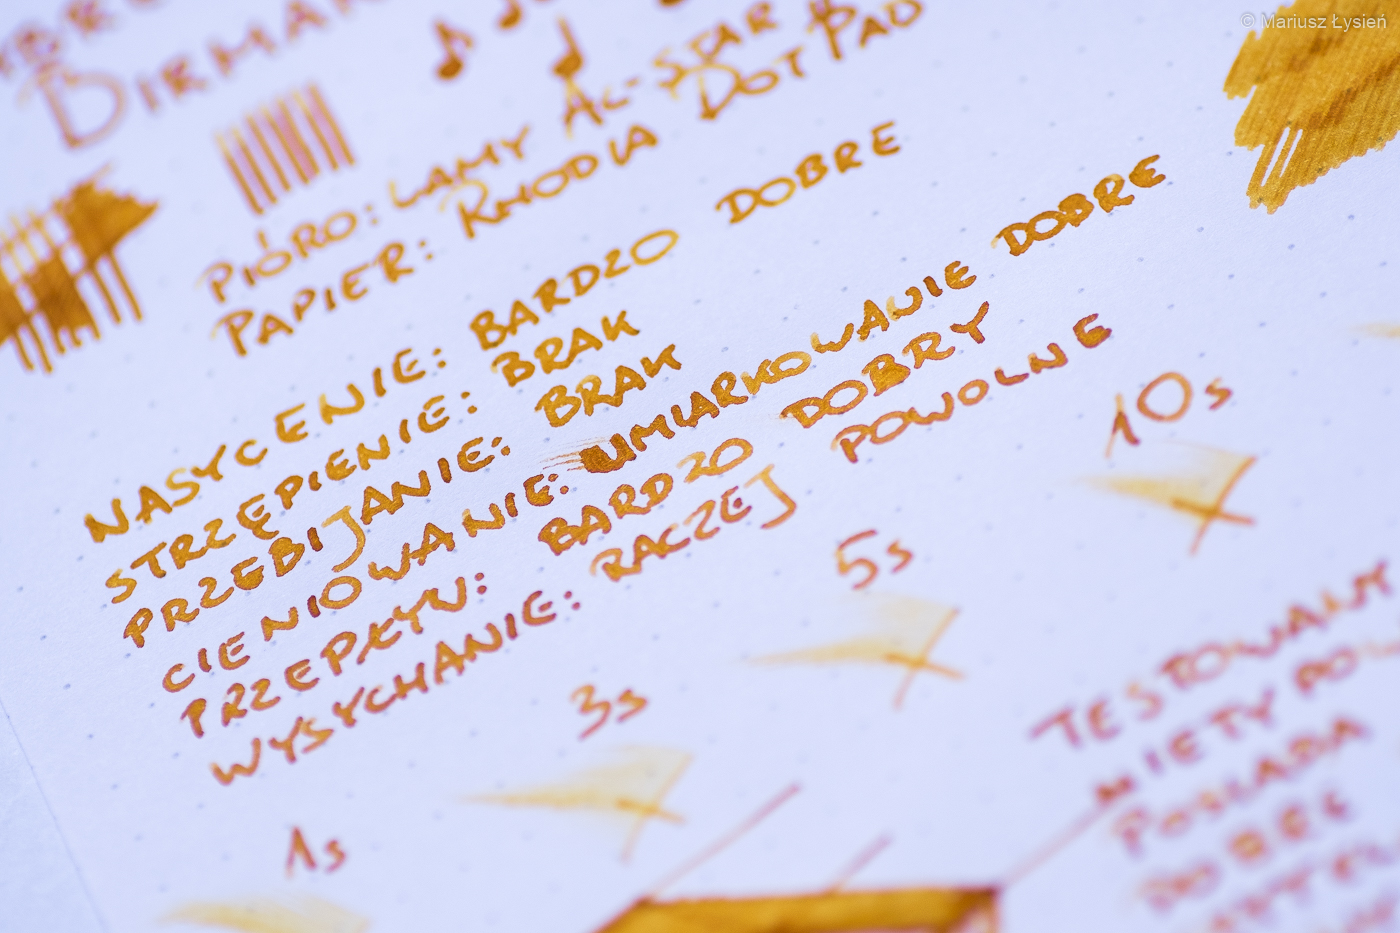 © Mariusz Łysień
PIÓRO: LAMY AL-STAR
PAPIER: RHODIA DOT PAD
NASYCENIE: BARDZO DOBRE
STRZĘPIENIE: BRAK
PRZEBIJANIE: BRAK
CIENIOWANIE: UMIARKOWANIE DOBRE
PRZEPŁYW: BARDZO DOBRY
WYSYCHANIE: RACZEJ POWOLNE
1s
3s
5s
10s
TESTOWANY